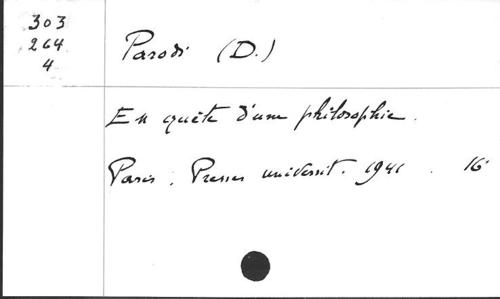 303
264
4
Parodi (D.)
En quête d'une philosophie.
Paris. Presses universit. 1941. 16°